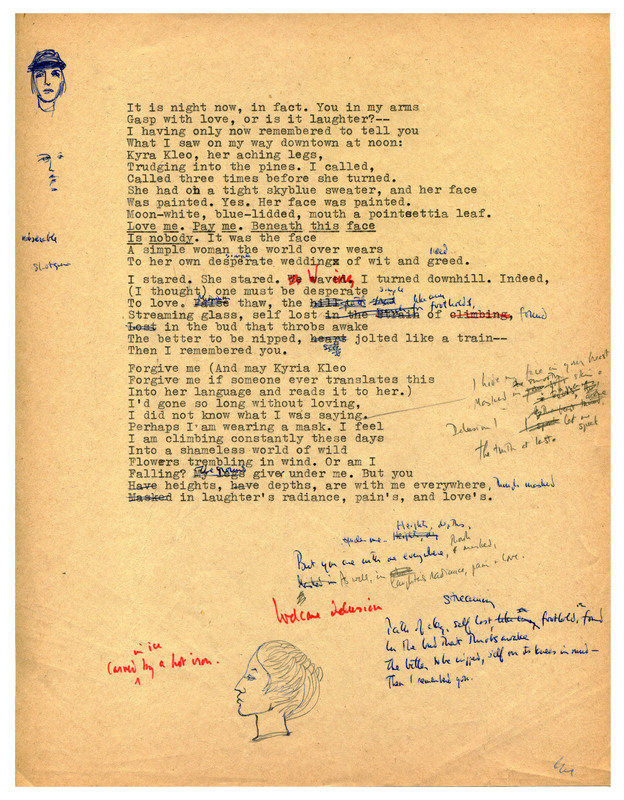 It is night now, in fact. You in my arms
Gasp with love, or is it laughter?--
I having only now remembered to tell you
What I saw on my way downtown at noon:
Kyra Kleo, her aching legs,
Trudging into the pines. I called,
Called three times before she turned.
She had on a tight skyblue sweater, and her face
Was painted. Yes. Her face was painted.
Moon-white, blue-lidded, mouth a pointsettia leaf.
Love me. Pay me. Beneath this face
Is nobody. It was the face
A simple woman the world over wears
simple need
To her own desperate weddings of wit and greed.
miserable
Shotgun
W ing
I stared. She stared. We waved, I turned downhill. Indeed,
(I thought) one must be desperate
simple
To love. False thaw, the hill
footholds,
Streaming glass, self lost in the strain of climbing, found
Lost in the bud that throbs awake
The better to be nipped, heart jolted like a train--
self
Then I remembered you.
Forgive me (And may Kyria Kleo
Forgive me if someone ever translates this
Into her language and reads it to her.)
I'd gone so long without loving,
I did not know what I was saying.
Perhaps I am wearing a mask. I feel
I am climbing constantly these days
Into a shameless world of wild
Flowers trembling in wind. Or am I
the ground
Falling? My legs give under me. But you
Have heights, have depths, are with me everywhere, though masked
Masked in laughter's radiance, pain's, and love's.
I hide my face in your breast
Masked in smooth skin
Delusion! let me speak
The truth at last.
Heights, depths,
under me. Heights, de
But you are with me everywhere, masked,
Masked in As well, in laughter's radiance, pain + love.
Welcome delusion
in ice
Carved by a hot iron.
streaming
Path of clay, self lost, like footholds, found
In the bud that throbs awake
The better to be nipped, self on its knees in mud—
Then I remembered you.